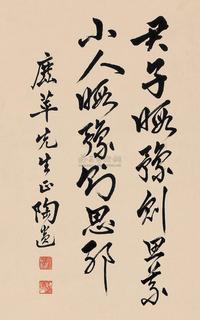 君子暇豫則思義
小人暇豫則思邪
先生正 陶遺